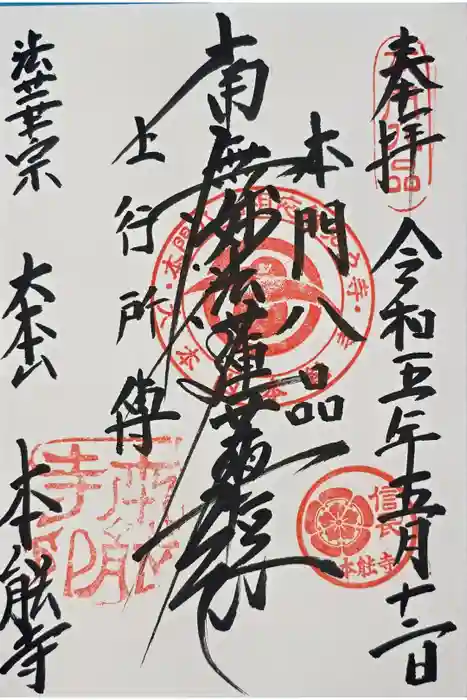 奉拝
令和五年五月十二日
本門八品
南無妙法蓮華経
上行所傳
法華宗
大本山
本能寺
信長
本能寺
本能寺印